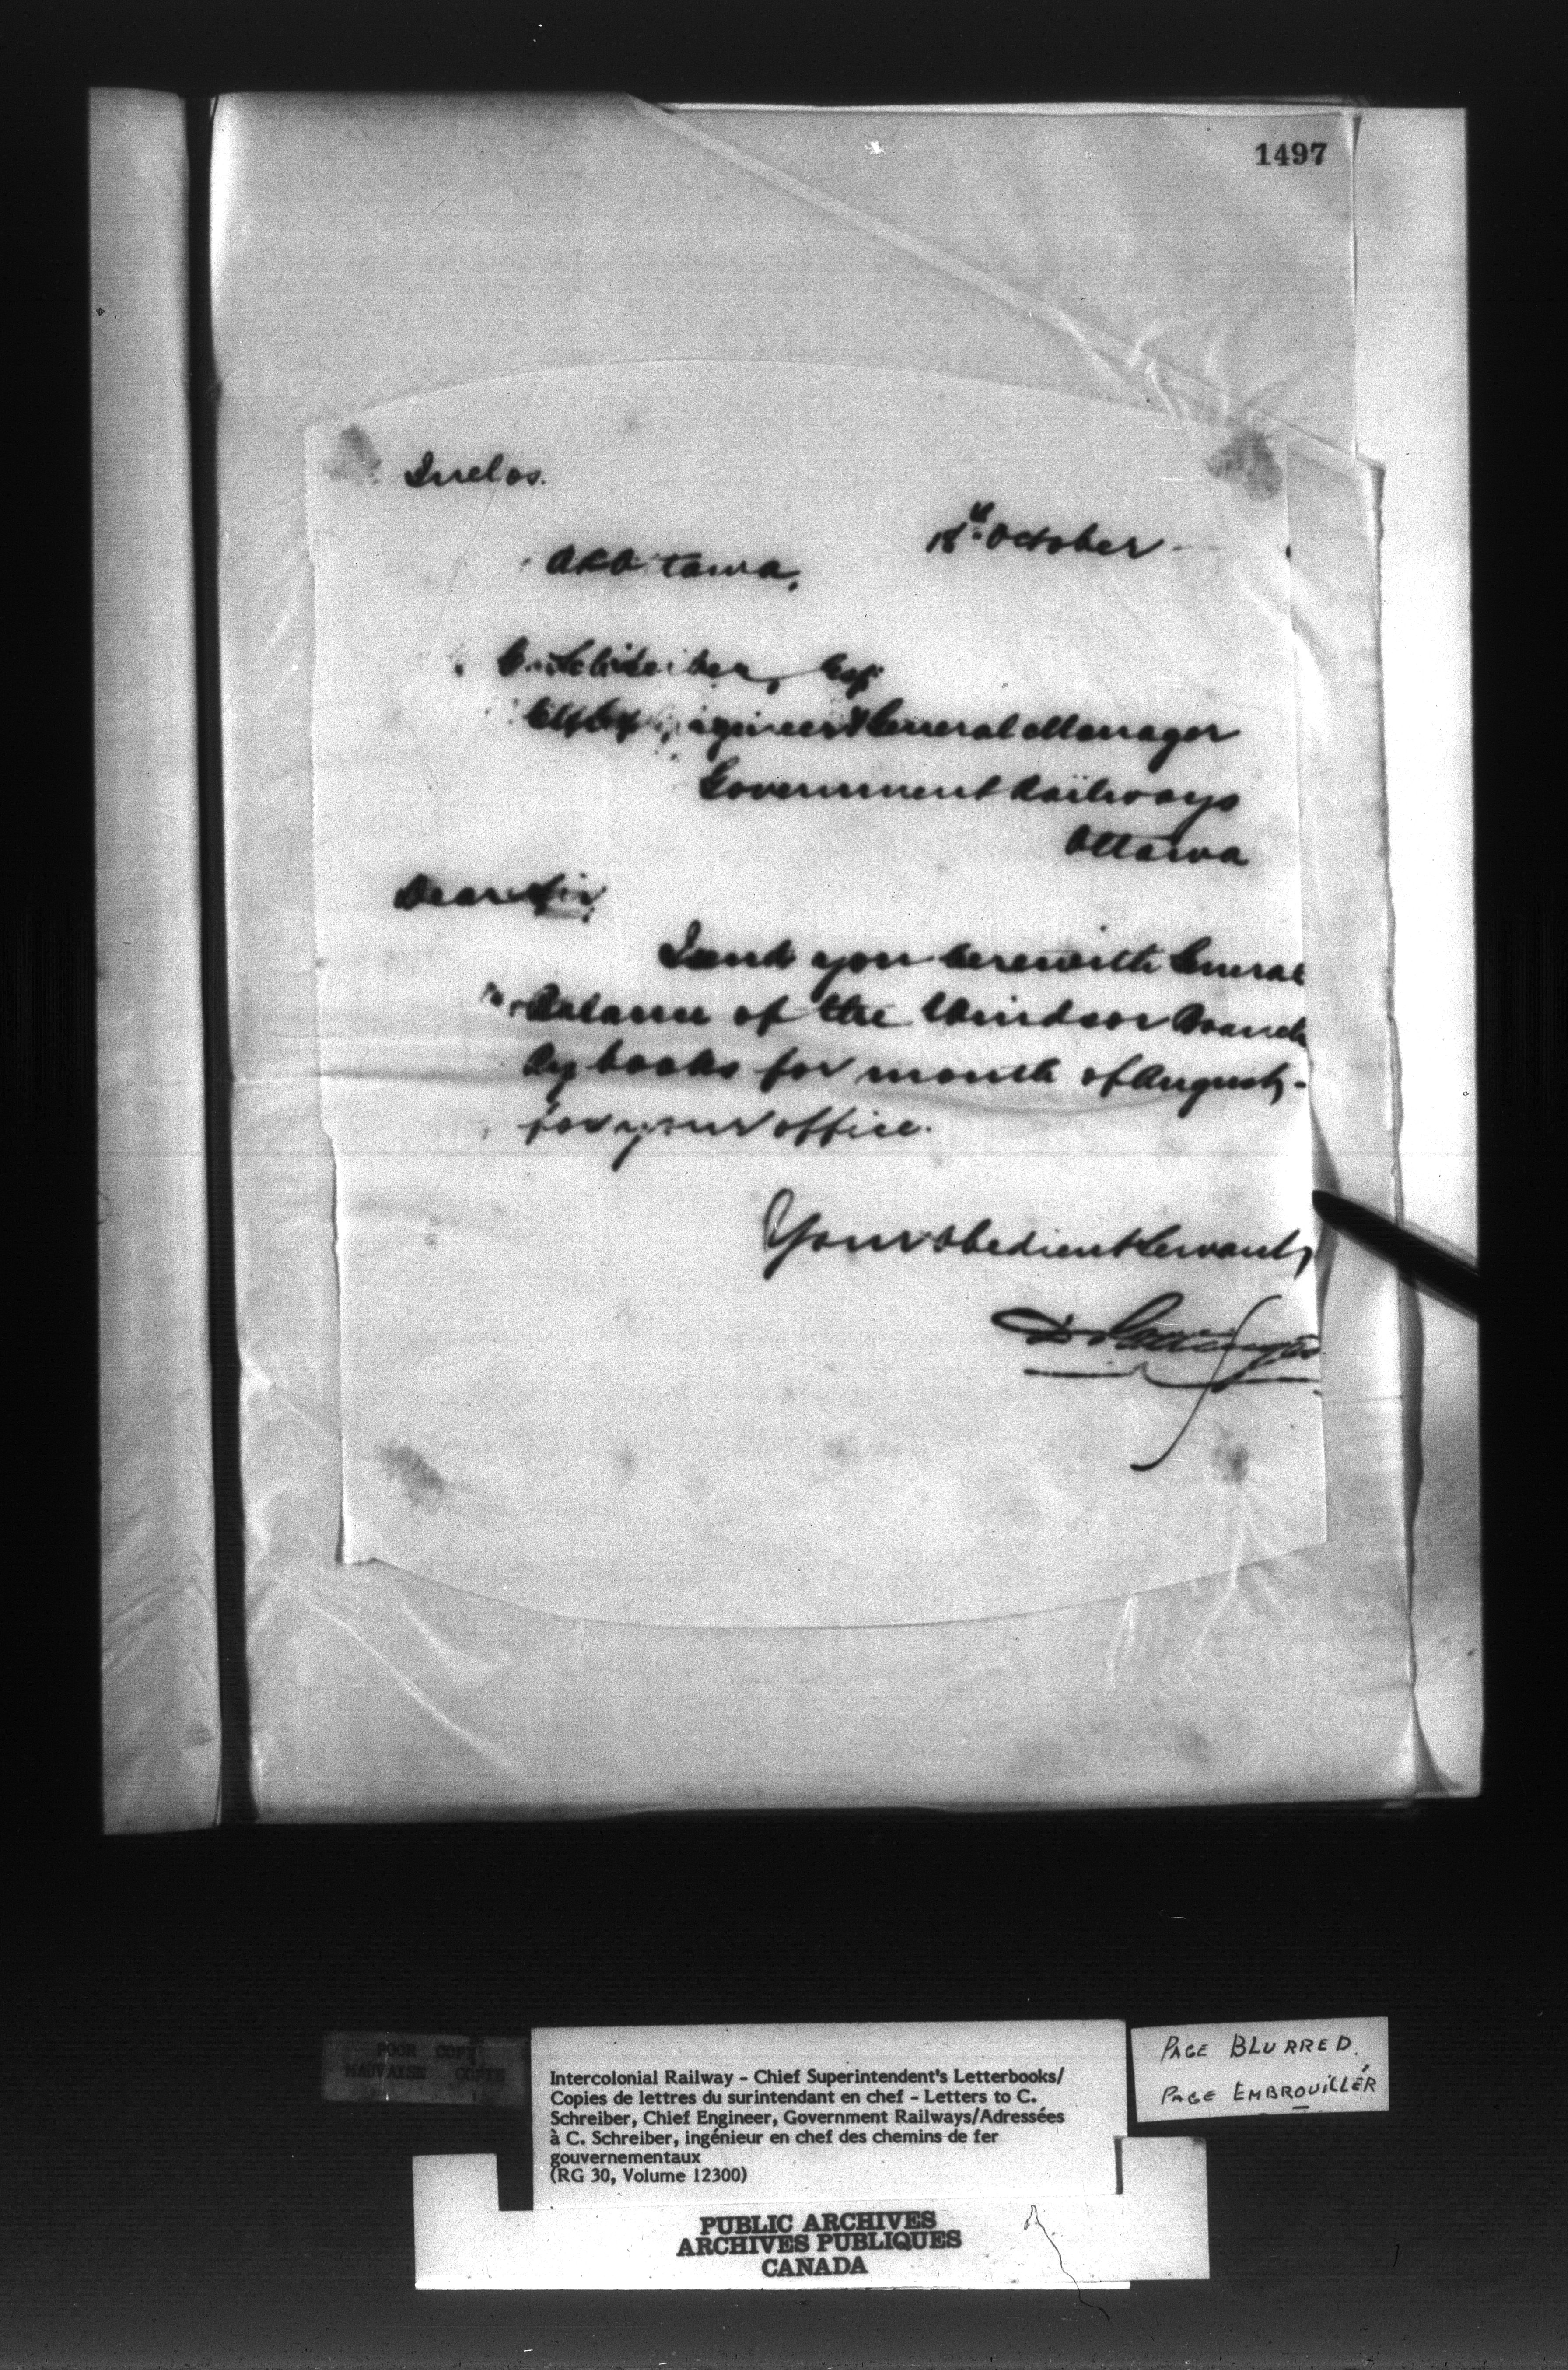 1497
Inclos.
18th October
Ottawa,
C. Schreiber, Esq
Chief Engineer & General Manager
Government Railways
Ottawa
Dear Sir,
I send you herewith General
Balance of the Windsor Branch
Ry books for month of August,
for your office.
Your obedient Servant,
D Pottinger
POOR COPY
MAUVAISE COPIE
Intercolonial Railway - Chief Superintendent's Letterbooks/
Copies de lettres du surintendant en chef - Letters to C.
Schreiber, Chief Engineer, Government Railways/Adressées
à C. Schreiber, ingénieur en chef des chemins de fer
gouvernementaux
(RG 30, Volume 12300)
PAGE BLURRED.
PAGE EMBROUILLÉR
PUBLIC ARCHIVES
ARCHIVES PUBLIQUES
CANADA